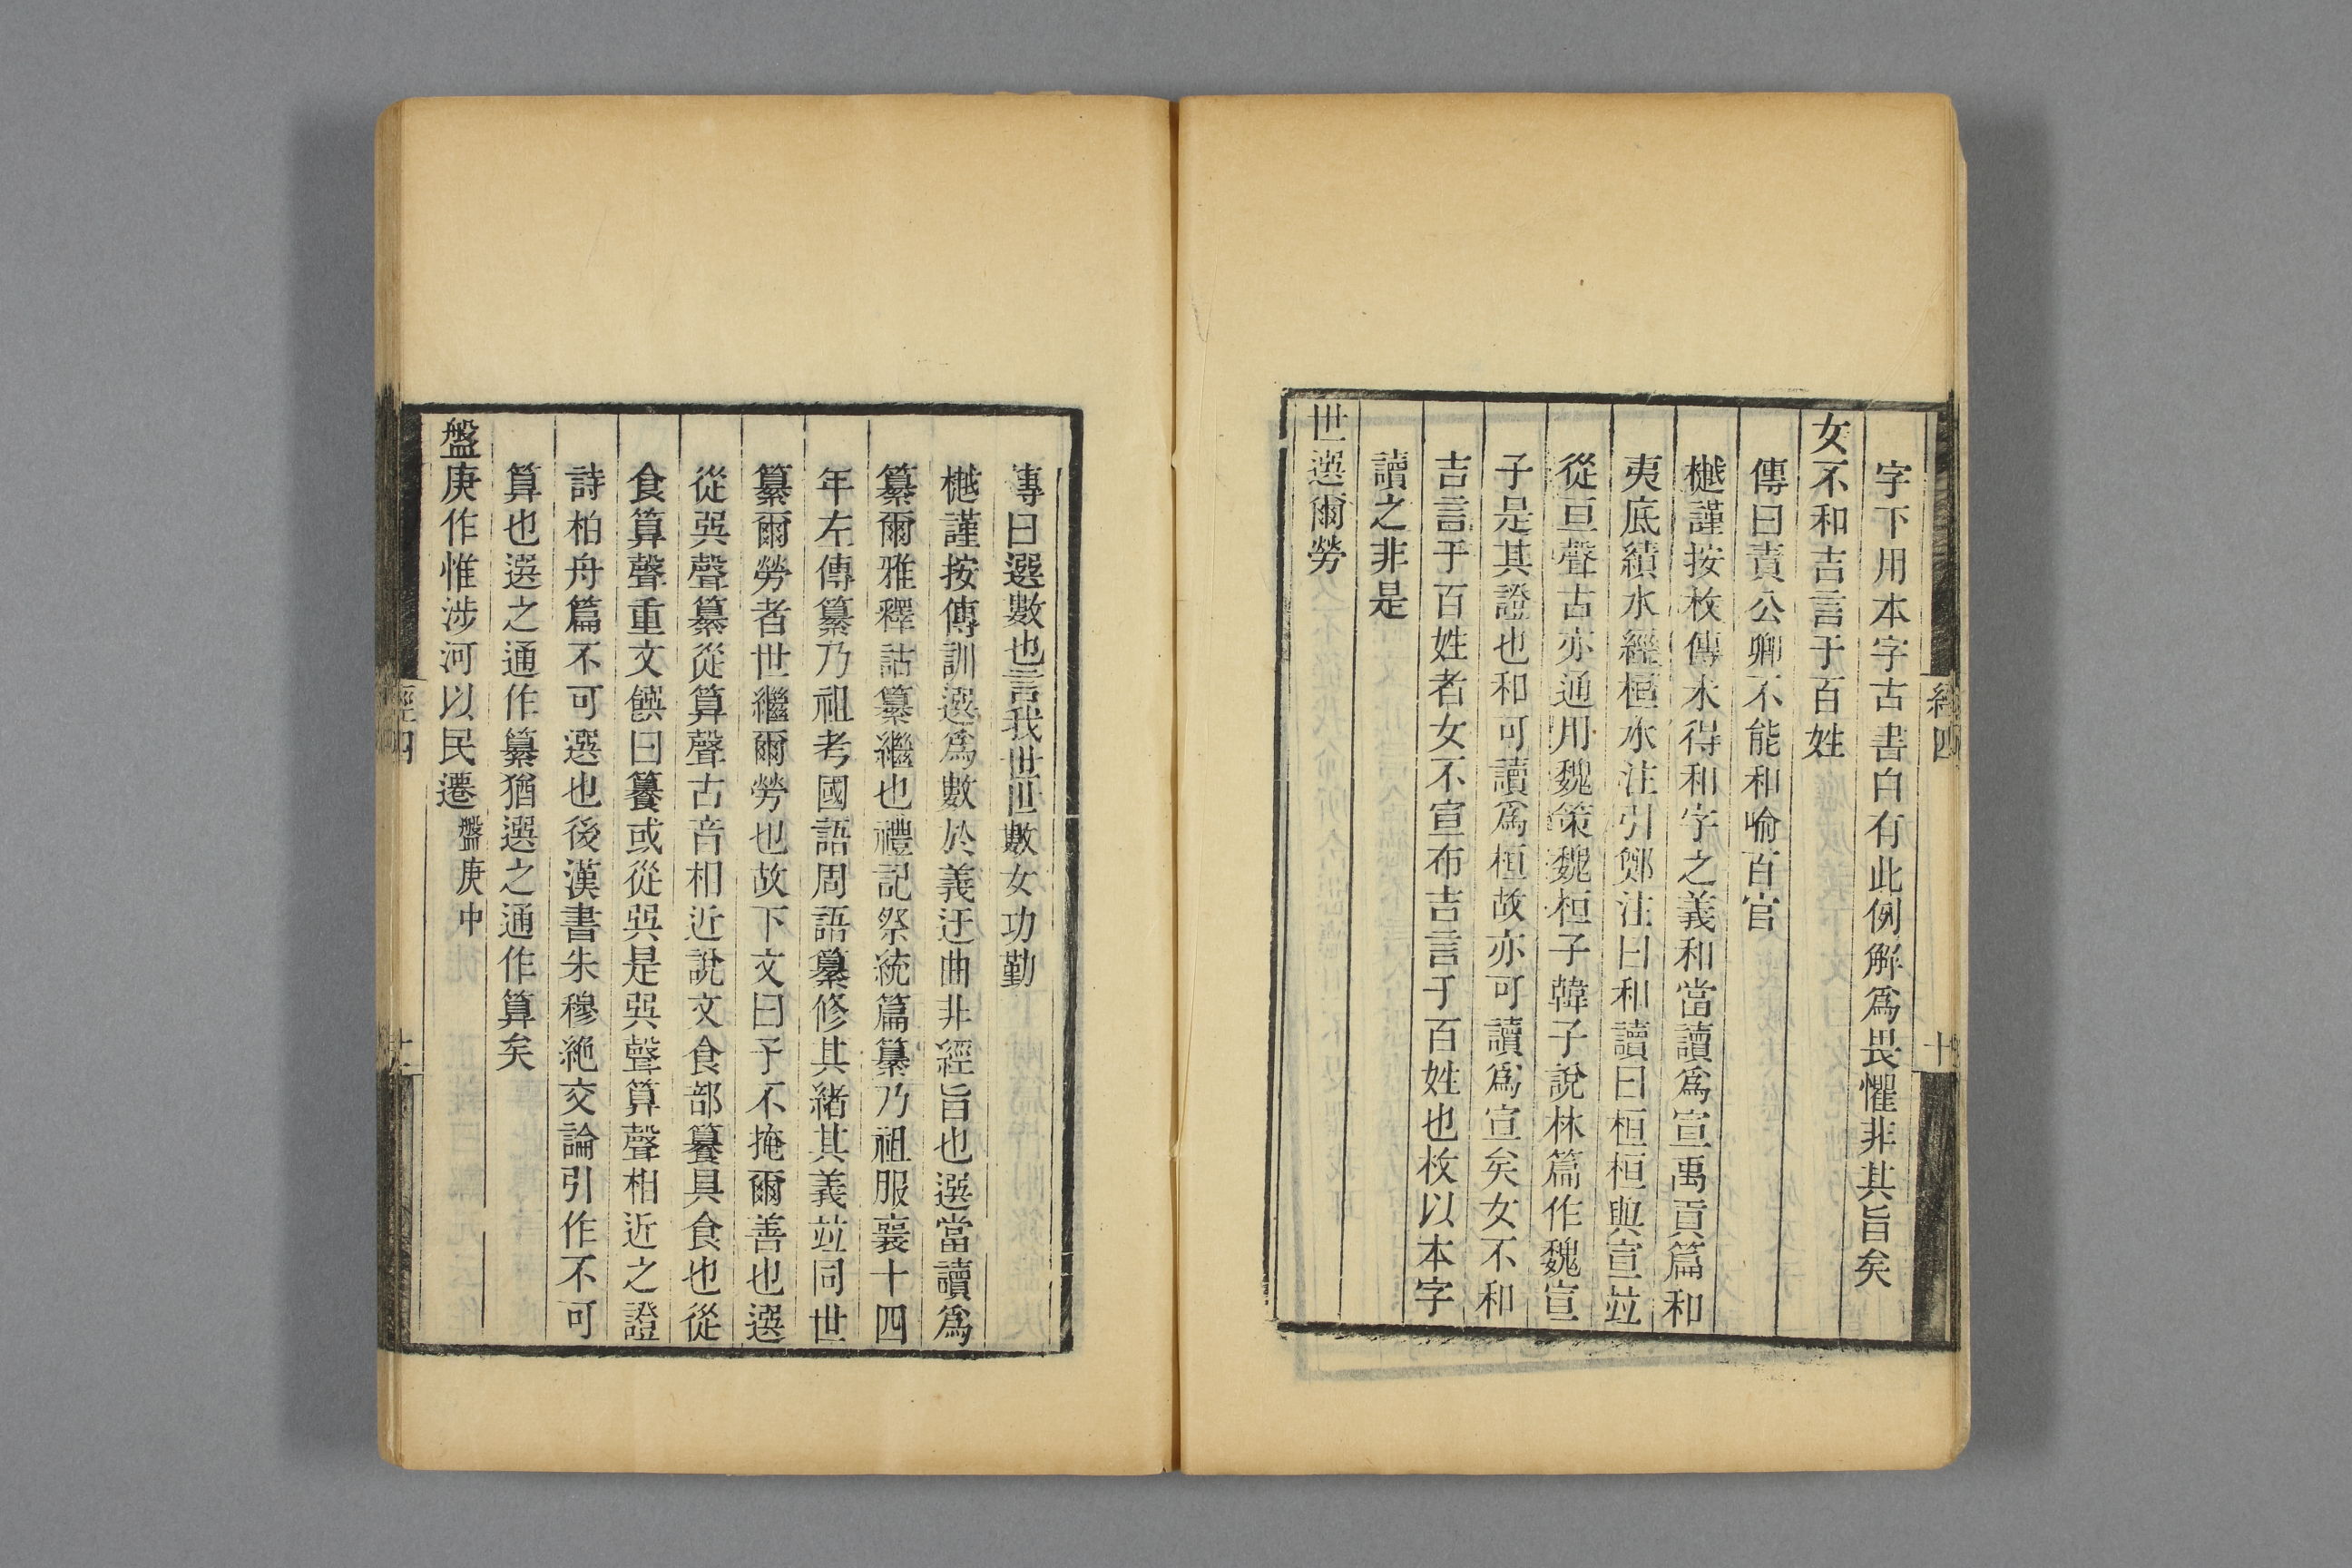 字下用本字古書自有此例解爲畏懼非其旨矣
女不和吉言于百姓
傳曰責公卿不能和喻百官
樾謹按枚傳未得和字之義和當讀爲宣禹貢篇和
夷底績水經桓水注引鄭注曰和讀曰桓桓與宣竝
從亘聲古亦通用魏策魏桓子韓子說林篇作魏宣
子是其證也和可讀爲桓故亦可讀爲宣矣女不和
吉言于百姓者女不宣布吉言于百姓也枚以本字
讀之非是
世選爾勞
經四
十
傳曰選數也言我世世數女功勤
樾謹按傳訓選爲數於義迂曲非經旨也選當讀爲
纂爾雅釋詁纂繼也禮記祭統篇纂乃祖服襄十四
年左傳纂乃祖考國語周語纂修其緒其義竝同世
纂爾勞者世繼爾勞也故下文曰予不掩爾善也選
從巽聲纂從算聲古音相近說文食部籑具食也從
食算聲重文饌曰籑或從巽是巽聲算聲相近之證
詩柏舟篇不可選也後漢書朱穆絶交論引作不可
算也選之通作纂猶選之通作算矣
盤庚作惟涉河以民遷盤庚中
經四